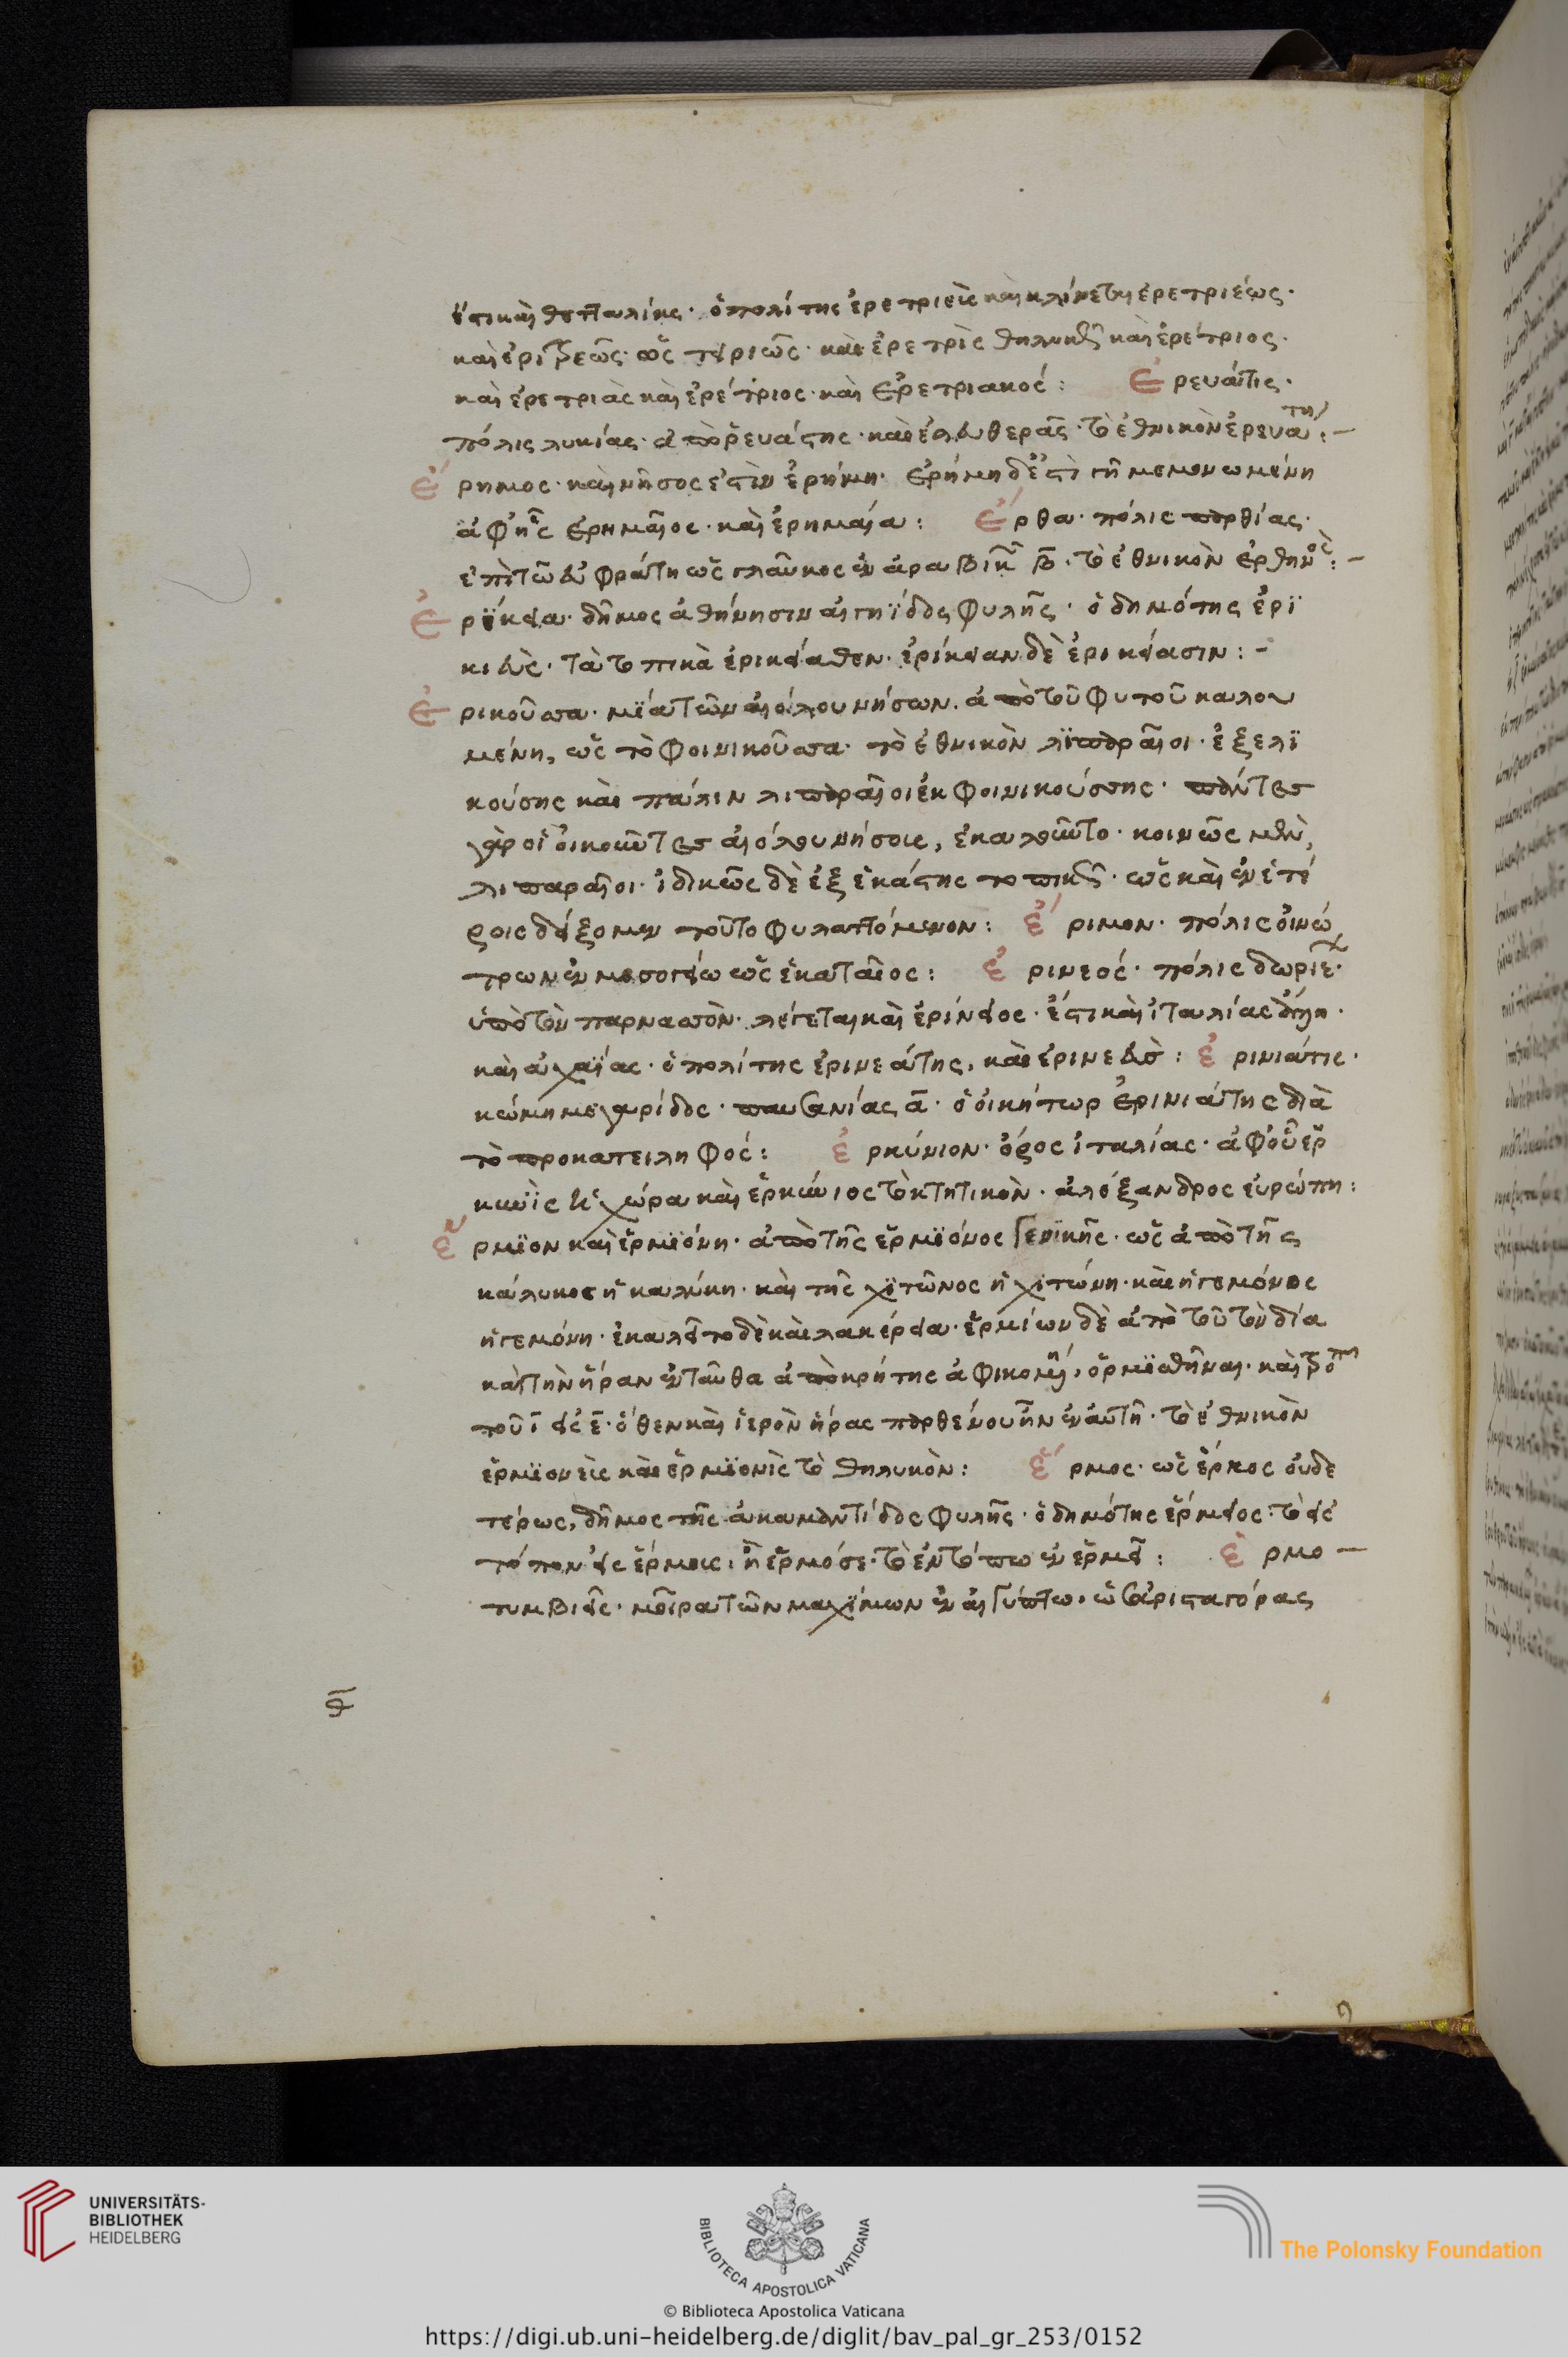 ἔστι καὶ θετταλίης· ὁ πολίτης ἐρετριεὺς καὶ κλίνεται ἐρετριέως·
καὶ ἐριτρεῶς· ὡς τεριῶς· καὶ ἐρετρὶς θηλυκῶς καὶ ἐρέτριος·
καὶ ἐρετριὰς καὶ ἐρέτριος· καὶ ἐρετριακός: Ἐρευάτις·
πόλις λυκίας· ἀπὸ ἐρευάτης· καὶ ἐλευθερᾶς· τὸ ἐθνικὸν ἐρευάτης:—
Ἔρημος· καὶ νῆσος ἐστὶν ἐρήμη· ἐρήμη δέ ἐστι γῆ μεμονωμένη
ἀφ' ἧς ἐρημαῖος· καὶ ἐρημαία: Ἔρθα· πόλις παρθίας·
ἐπὶ τῶ εὐφράτη ὡς γλαῦκος ἐν ἀραβικῆς β̅· τὸ ἐθνικὸν ἐρθηνός:—
Ἐρίκεια· δῆμος ἀθήνησιν αἰγηΐδος φυλῆς· ὁ δημότης ἐρϊ
κιεὺς· τὰ τοπικὰ ἐρικείαθεν· ἐρίκειαν δὲ ἐρικείασιν:-
Ἐρικοῦσσα· μία τῶν αἰόλου νήσων· ἀπὸ τοῦ φυτοῦ καλου
μένη, ὡς τὸ φοινικοῦσσα· τὸ ἐθνικὸν λϊπαραῖοι· ἐξ ελϊ
κούσης καὶ πάλιν λιπαραῖοι ἐκ φοινικούσσης· πάντες
γὰρ οἱ οἰκοῦντες αἰόλου νήσοις, ἐκαλοῦντο· κοινῶς μὲν,
λιπαραῖοι· ἰδικῶς δὲ ἐξ ἑκάστης τοπικῶς· ὡς καὶ ἐν ἑτέ
ροις δείξομεν τοῦτο φυλαττόμενον: Ἔριμον· πόλις οἰνώ
τρων ἐν μεσογείω ὡς ἑκαταῖος: Ἐρινεός· πόλις δωριέων·
ὑπὸ τὸν παρνασσὸν· λέγεται καὶ ἐρίνειος· ἔστι καὶ ἰταλίας ἄλλη·
καὶ ἀχαΐας· ὁ πολίτης ἐρινεάτης, καὶ ἐρινεεὺς: Ἐρινιάτις·
κώμη μεγαρίδος· παυσανίας α̅· ὁ οἰκήτωρ ἐρινιάτης διὰ
τὸ προκατειληφός: Ἐρκύνιον· ὄρος ἰταλίας· ἀφ' οὗ ἑρ
κυνὶς ἡ χώρα καὶ ἑρκύνιος τὸ κτητικὸν· ἀλέξανδρος εὐρώπη:
Ἑρμϊον καὶ ἑρμϊόνη· ἀπὸ τῆς ἑρμϊόνος γενϊκῆς· ὡς ἀπὸ τῆς
κάλυκος ἡ καλύκη· καὶ τῆς χϊτῶνος ἡ χϊτώνη· καὶ ἡγεμόνος
ἡγεμόνη· ἐκαλεῖτο δὲ καὶ λακέρεια· ἑρμίων δὲ ἀπὸ τοῦ τὸν δία
καὶ τὴν ἥραν ἐνταῦθα ἀπὸ κρήτης ἀφικομένους, ὁρμϊσθῆναι· καὶ τροπῆ
τοῦ ῑ εἰς ε̅· ὅθεν καὶ ἱερὸν ἥρας παρθένου ἦν ἐν αὐτῆ· τὸ ἐθνικὸν
ἑρμϊονεὺς καὶ ἑρμϊονὶς τὸ θηλυκὸν: Ἕρμος· ὡς ἕρκος οὐδε
τέρως, δῆμος τῆς ἀκαμαντίδος φυλῆς· ὁ δημότης ἕρμειος· τὸ εἰς
τόπον εἰς ἕρμους, ἢ ἑρμόσε· τὸ ἐν τόπω ἐν ἑρμεῖ: Ἑρμο—
τυμβιεῖς· μοῖρα τῶν μαχίμων ἐν αἰγύπτω, ὡς ἀρισταγόρας
θ̅
UNIVERSITÄTS-
BIBLIOTHEK
HEIDELBERG
BIBLIOTECA APOSTOLICA VATICANA
The Polonsky Foundation
© Biblioteca Apostolica Vaticana
https://digi.ub.uni-heidelberg.de/diglit/bav_pal_gr_253/0152